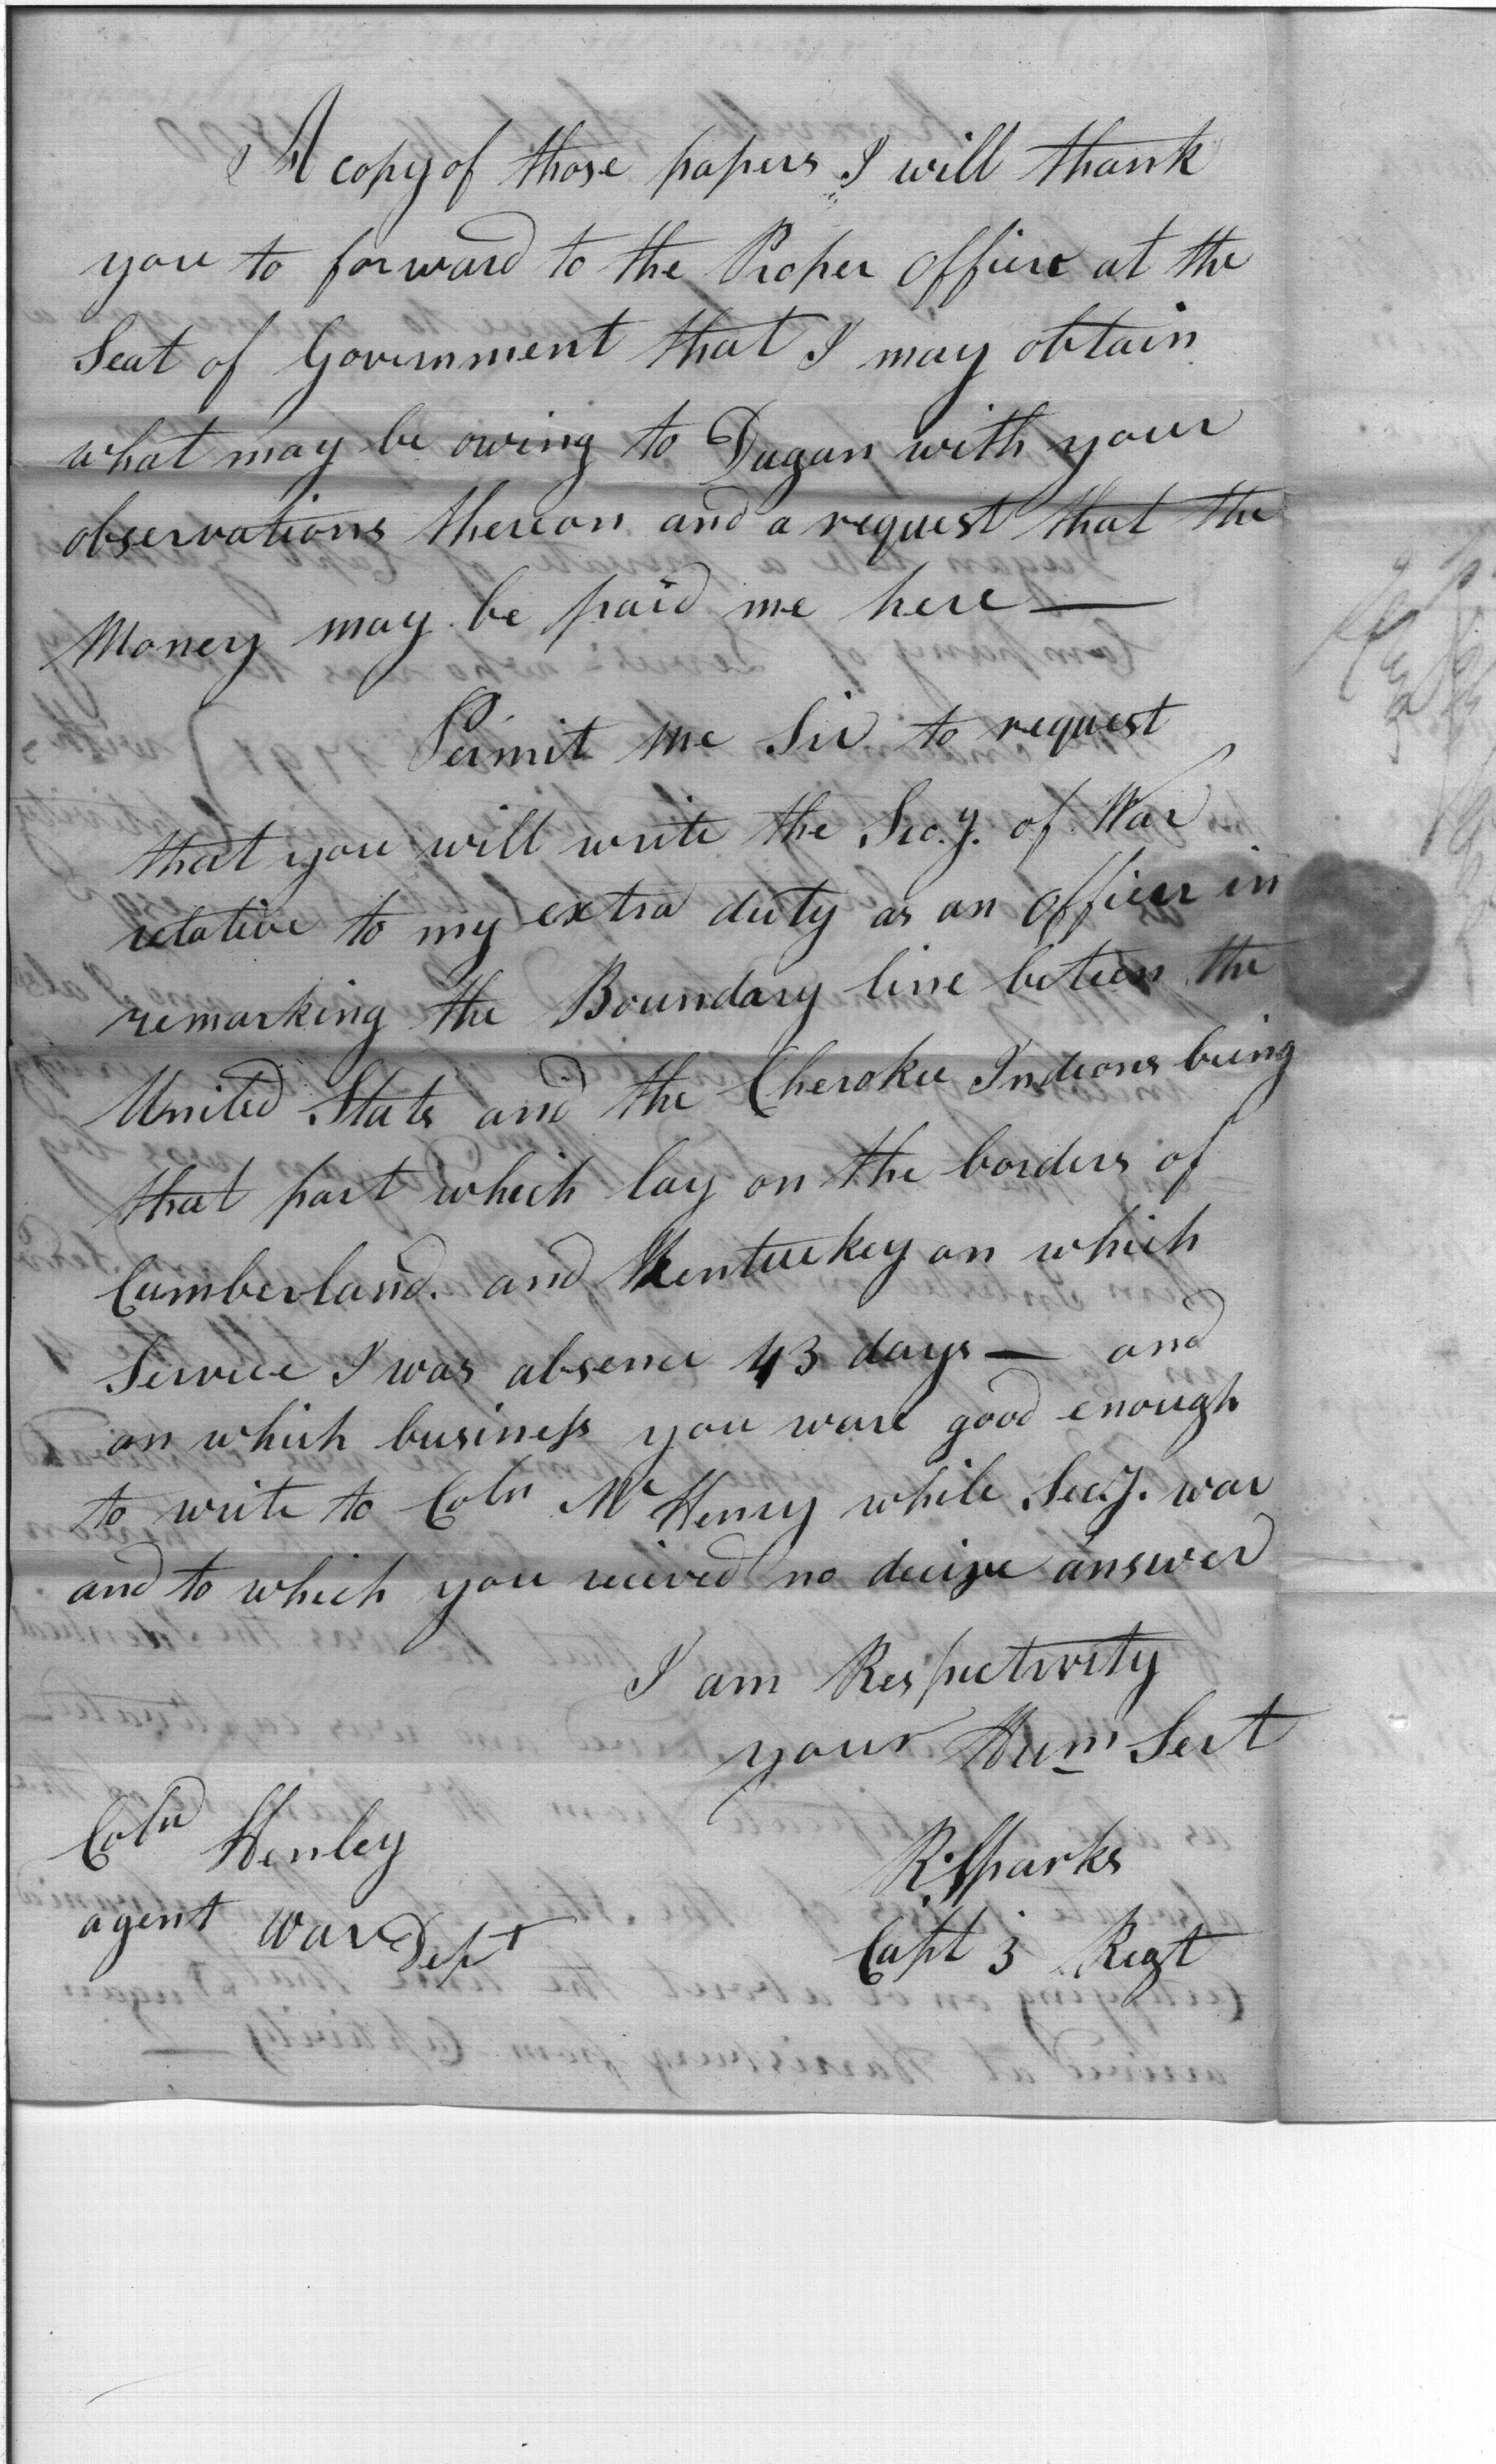 A copy of those papers I will thank
you to forward to the Proper Officer at the
Seat of Government that I may obtain
what may be owing to Dugan with your
observations thereon and a request that the
Money may be paid me here —
Permit me Sir to request
that you will write the Sec.y. of War
relative to my extra duty as an Officer in
remarking the Boundary line beteen the
United States and the Cherokee Indeans being
that part which lay on the borders of
Cumberland. and Kentuckey on which
Service I was absence 43 days — and
on which business you ware good enough
to write to Coln Mc Henry while Sec.y. war
and to which you recived no decisve answer
I am Respectively
your Hum Sert
Coln Henley
R. Sparks
agent War Dept
Capt 3 Regt